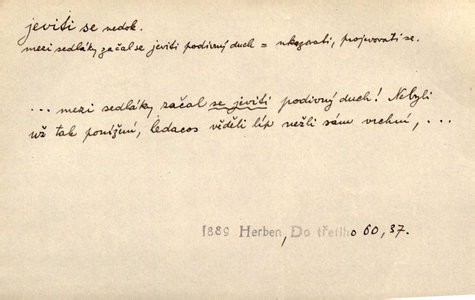 jeviti se nedok.
mezi sedláky začal se jeviti podivný duch = ukazovati, projevovati se.
... mezi sedláky začal se jeviti podivný duch! Nebyli
už tak ponížení, ledacos věděli líp nežli sám vrchní, ...
1889 Herben, Do třetího 60, 37.